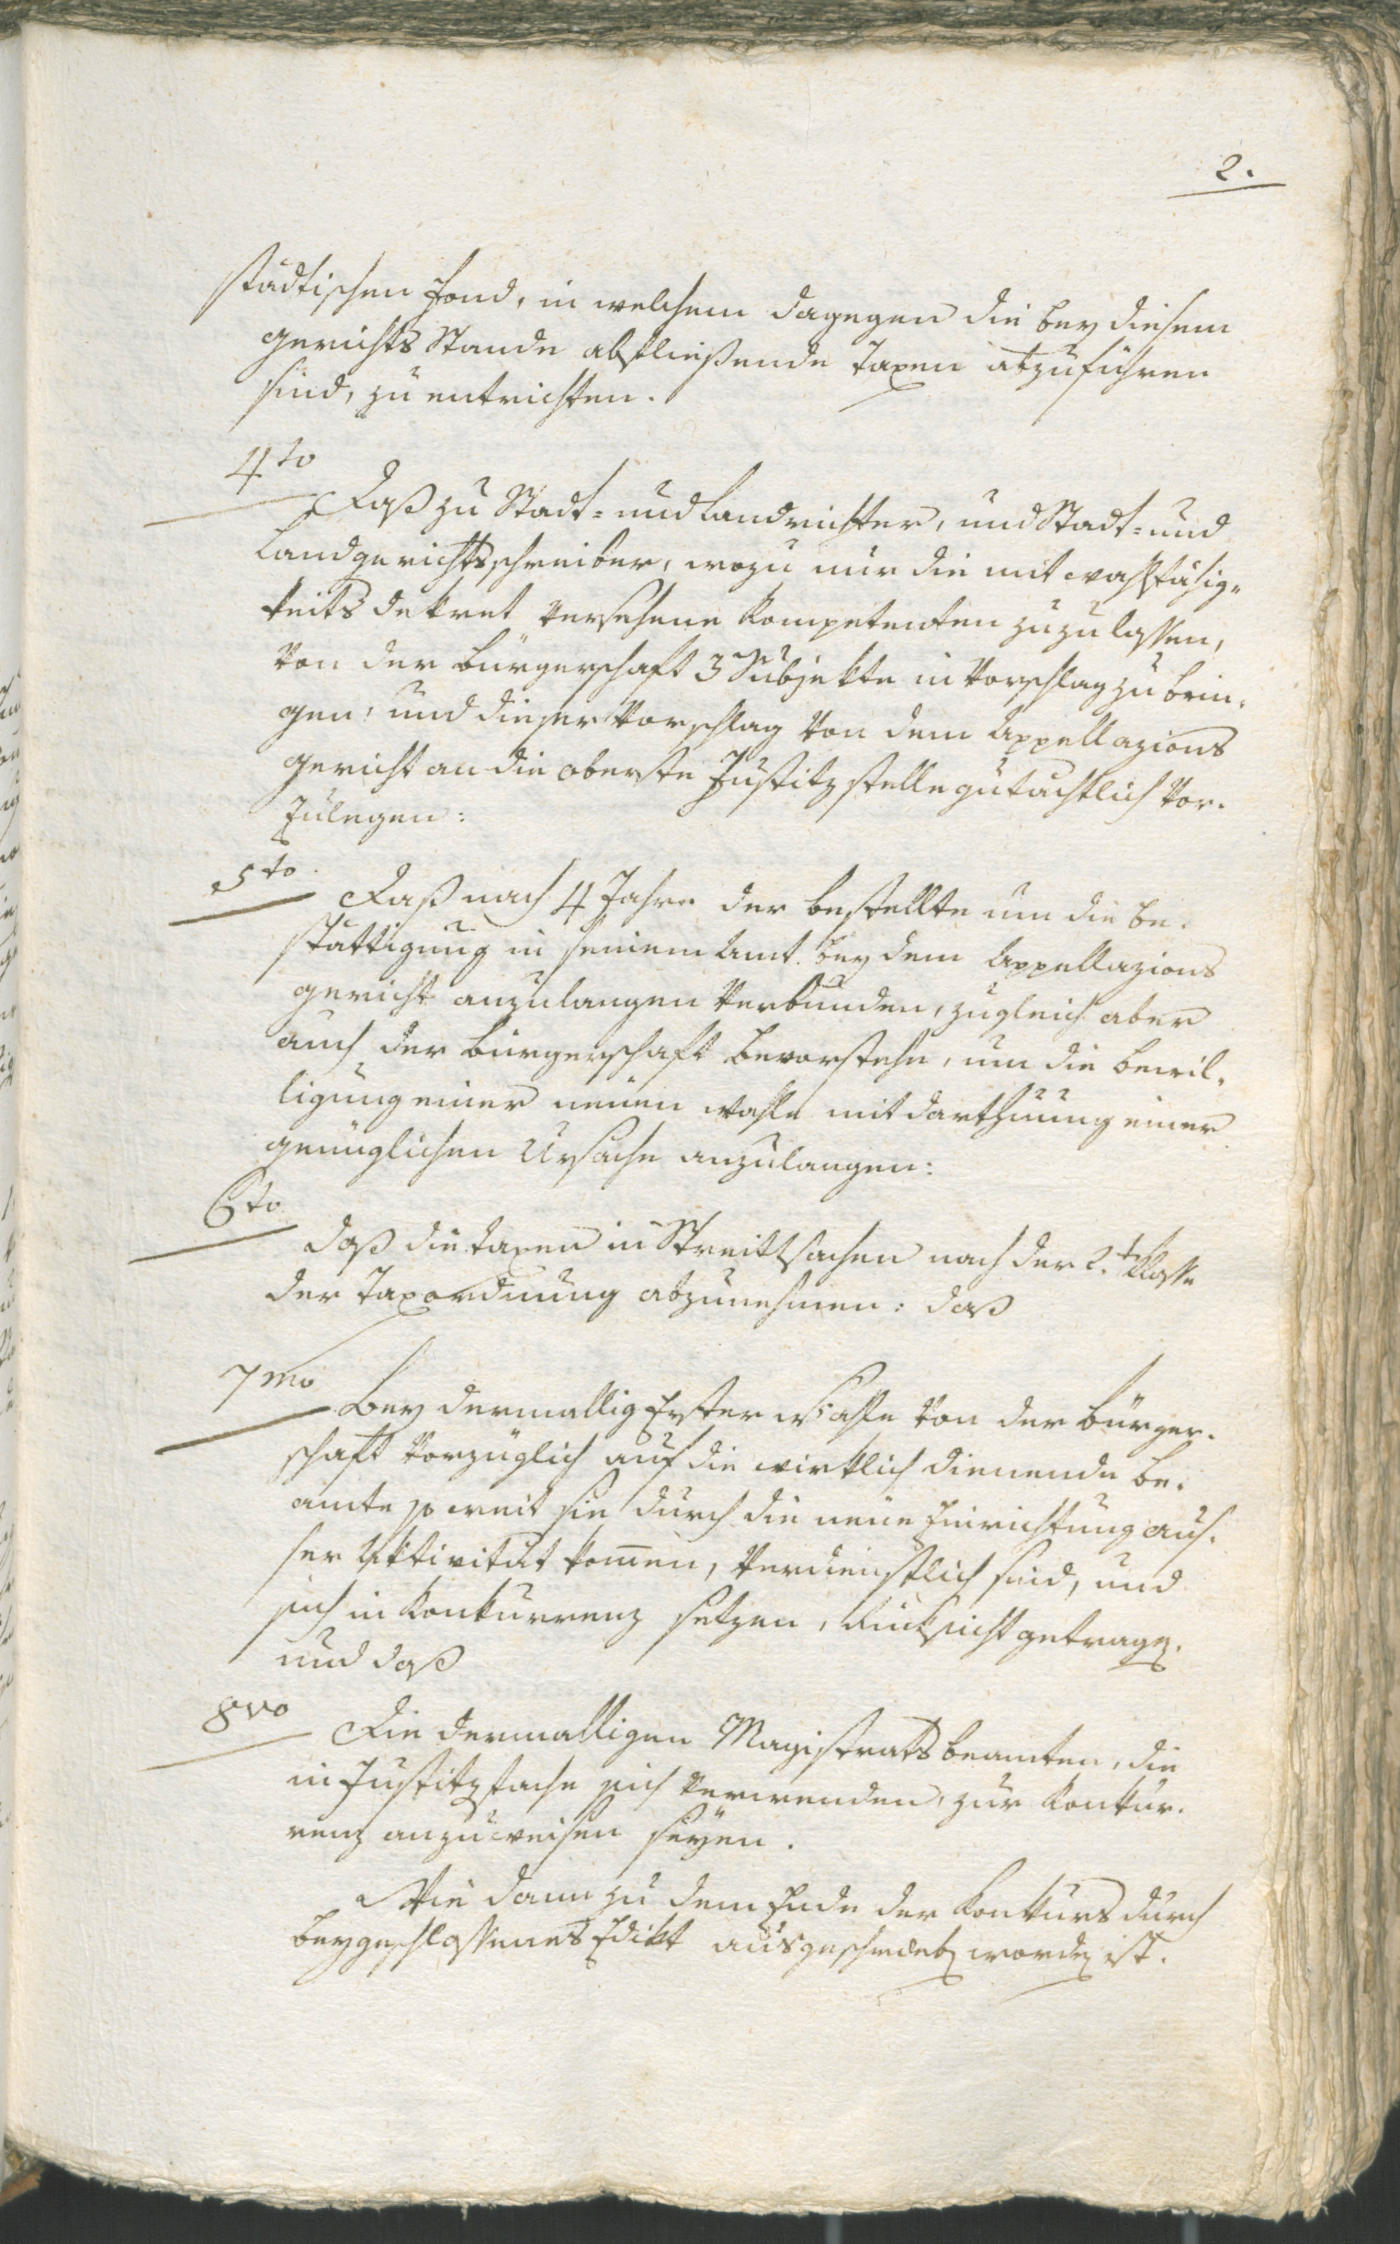 2.
städtischen Fond, in welchem dagegen die bey diesem
Gerichts Stande abfließende Taxen abzuführen
sind, zu entrichten.
4to
Daß zu Stadt- und Landrichter, und Stadt- und
Landgerichtsschreiber, wozu nur die mit Wahlfähig-
keits dekret versehene Kompetenten zuzulassen,
von der Bürgerschaft 3 Subjekte in Vorschlag zu brin-
gen: und dieser Vorschlag von dem Appellazions
Gericht an die oberste Justitzstelle gutächtlich vor-
zulegen:
5to
Daß nach 4 Jahre der bestellte um die Be-
stättigung in seinem Amt bey dem Appellazions
Gericht anzulangen verbunden, zugleich aber
auch der Bürgerschaft bevorstehe, um die Bewil-
ligung einer neuen Wahle mit darthuung einer
genüglichen Ursache anzulangen:
6to
daß die Taxen in Streittsachen nach der 2.t Klasse
der Taxordnung abzunehmen: daß
7mo
Bey dermallig Erster Wahle von der Bürger-
schaft vorzüglich auf die wirklich dienende Be-
amte so weit sie durch die neue Einrichtung aus-
ser Aktivität kom̄en, verdienstlich sind, und
sich in Konkurrenz setzen, Rücksicht getragen.
und daß
8vo
Die dermalligen Magistrats beamten, die
in Justitzfache sich verwenden, zur Konkur-
renz anzuweisen seyen.
Wie dann zu dem Ende der Konkurs durch
beygeschlossenes Edikt ausgeschrieben worden ist.